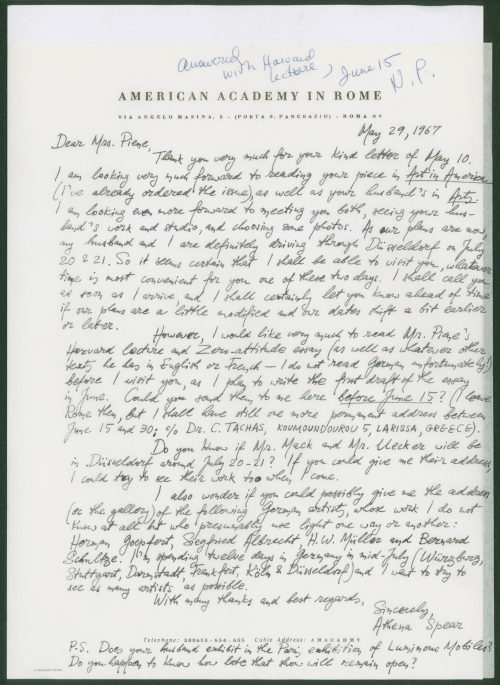 answered
with Harvard
lecture, June 15
N.P.
AMERICAN ACADEMY IN ROME
VIA ANGELO MASINA, 5 - (PORTA S. PANCRAZIO) - ROMA 00
May 29, 1967
Dear Mrs. Piene,
Thank you very much for your kind letter of May 10.
I am looking very much forward to reading your piece in Art in America
(I've already ordered the issue) as well as your husband's in Arts.
I am looking even more forward to meeting you both, seeing your hus-
band's work and studio, and choosing some photos. As our plans are now,
my husband and I are definitely driving through Düsseldorf on July
20 & 21. So it seems certain that I shall be able to visit you, whatever
time is most convenient for you one of these two days. I shall call you
as soon as I arrive, and I shall certainly let you know ahead of time
if our plans are a little modified and our dates shift a bit earlier
or later.
However, I would like very much to read Mr. Piene's
Harvard lecture and Zero-attitude essay (as well as whatever other
texts he has in English or French – I do not read German unfortunately)
before I visit you, as I plan to write the first draft of the essay
in June. Could you send them to me here before June 15? (I leave
Rome then, but I shall have still one more permanent address between
June 15 and 30: c/o Dr. C. TACHAS, KOUMOUNDOUROU 5, LARISSA, GREECE).
Do you know if Mr. Mack and Mr. Uecker will be
in Düsseldorf around July 20-21? If you could give me their address,
I could try to see their work too when I come.
I also wonder if you could possibly give me the address
(or the gallery) of the following German artists, whose work I do not
know at all but who presumably use light one way or another:
Herman Goepfert, Siegfried Albrecht, H.W. Müller and Bernard
Schultze. I'm spending twelve days in Germany in mid-July (Würzburg,
Stuttgart, Darmstadt, Frankfort, Köln & Düsseldorf) and I want to try to
see as many artists as possible.
With many thanks and best regards,
Sincerely,
Athena Spear
Telephone: 588653-654-655 Cable Address: AMACADMY
P.S. Does your husband exhibit in the Paris exhibition of Luminous Mobiles?
Do you happen to know how late that show will remain open?